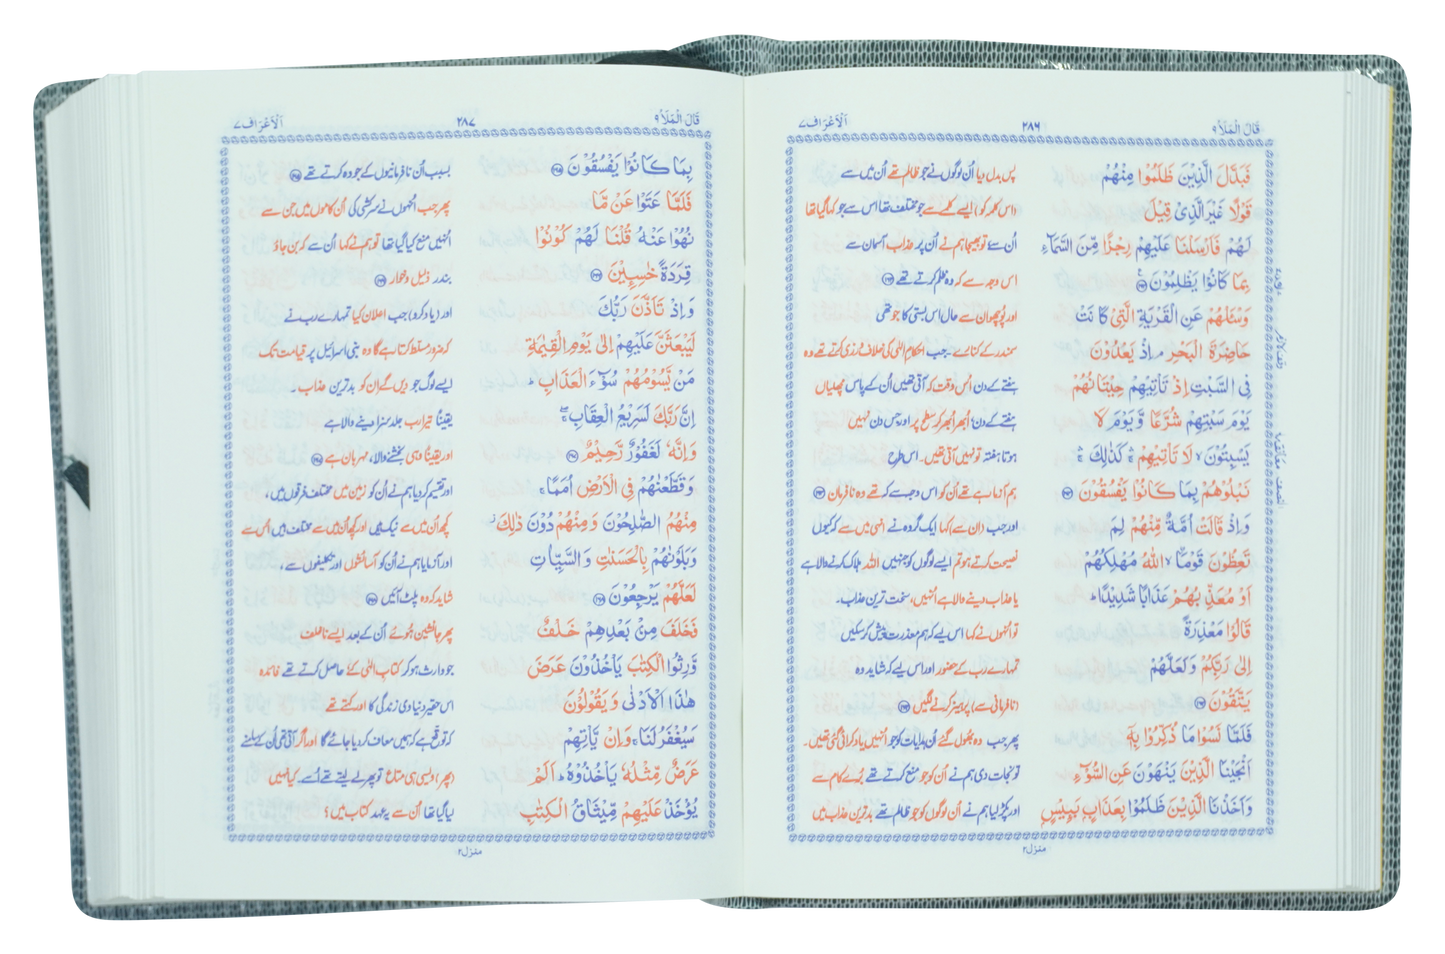 قَالَ الْمَلَاُ ٩ ٢٨٦ اَلْاَعْرَاف ٧
فَبَدَّلَ الَّذِيْنَ ظَلَمُوْا مِنْهُمْ پس بدل دیا اُن لوگوں نے جو ظالم تھے اُن میں سے
قَوْلًا غَيْرَ الَّذِيْ قِيْلَ (اس کلمہ کو) ایسے کلمے سے جو مختلف تھا اس سے جو کہا گیا تھا
لَهُمْ فَاَرْسَلْنَا عَلَيْهِمْ رِجْزًا مِّنَ السَّمَآءِ اُن سے تو بھیجا ہم نے اُن پر عذاب آسمان سے
بِمَا كَانُوْا يَظْلِمُوْنَ ۝ اس وجہ سے کہ وہ ظلم کرتے تھے ۝
وَسْئَلْهُمْ عَنِ الْقَرْيَةِ الَّتِيْ كَانَتْ اور پُوچھو ان سے حال اس بستی کا جو تھی
حَاضِرَةَ الْبَحْرِ ۘ اِذْ يَعْدُوْنَ سمندر کے کنارے۔ جب احکامِ الٰہی کی خلاف ورزی کرتے تھے وہ
فِي السَّبْتِ اِذْ تَاْتِيْهِمْ حِيْتَانُهُمْ ہفتے کے دن اُس وقت کہ آتی تھیں اُن کے پاس مچھلیاں
يَوْمَ سَبْتِهِمْ شُرَّعًا وَّيَوْمَ لَا ہفتے کے دن اُبھر اُبھر کر سطح پر اور جس دن نہیں
يَسْبِتُوْنَ ۙ لَا تَاْتِيْهِمْ ۛ كَذٰلِكَ ۛ ہوتا ہفتہ تو نہیں آتی تھیں۔ اس طرح
نَبْلُوْهُمْ بِمَا كَانُوْا يَفْسُقُوْنَ ۝ ہم آزما رہے تھے اُن کو اس وجہ سے کہ تھے وہ نافرمان ۝
وَاِذْ قَالَتْ اُمَّةٌ مِّنْهُمْ لِمَ اور جب (ان سے) کہا ایک گروہ نے انہی میں سے کہ کیوں
تَعِظُوْنَ قَوْمَا ۙ اللّٰهُ مُهْلِكُهُمْ نصیحت کرتے ہو تم ایسے لوگوں کو جنہیں اللہ ہلاک کرنے والا ہے
اَوْ مُعَذِّبُهُمْ عَذَابًا شَدِيْدًا ؕ یا عذاب دینے والا ہے اُنہیں، سخت ترین عذاب۔
قَالُوْا مَعْذِرَةً تو اُنہوں نے کہا اس لیے کہ ہم معذرت پیش کر سکیں
اِلٰى رَبِّكُمْ وَلَعَلَّهُمْ تمہارے رب کے حضور اور اس لیے کہ شاید وہ
يَتَّقُوْنَ ۝ (نافرمانی سے) پرہیز کرنے لگیں ۝
فَلَمَّا نَسُوْا مَا ذُكِّرُوْا بِهٖٓ پھر جب وہ بھول گئے اُن ہدایات کو جو اُنہیں یاد کرائی گئی تھیں۔
اَنْجَيْنَا الَّذِيْنَ يَنْهَوْنَ عَنِ السُّوْٓءِ تو نجات دی ہم نے اُن کو جو منع کرتے تھے بُرے کام سے
وَاَخَذْنَا الَّذِيْنَ ظَلَمُوْا بِعَذَابٍۭ بَـِٔيْسٍۭ اور پکڑ لیا ہم نے اُن لوگوں کو جو ظالم تھے بدترین عذاب میں
منزل ٢
قَالَ الْمَلَاُ ٩ ٢٨٧ اَلْاَعْرَاف ٧
بِمَا كَانُوْا يَفْسُقُوْنَ ۝ بسبب اُن نافرمانیوں کے جو وہ کرتے تھے ۝
فَلَمَّا عَتَوْا عَنْ مَّا پھر جب اُنہوں نے سرکشی کی اُن کاموں میں جن سے
نُهُوْا عَنْهُ قُلْنَا لَهُمْ كُوْنُوْا اُنہیں منع کیا گیا تھا تو ہم نے کہا اُن سے کہ بن جاؤ
قِرَدَةً خٰسِـِٕيْنَ ۝ بندر ذلیل و خوار ۝
وَاِذْ تَاَذَّنَ رَبُّكَ اور (یاد کرو) جب اعلان کیا تمہارے رب نے
لَيَبْعَثَنَّ عَلَيْهِمْ اِلٰى يَوْمِ الْقِيٰمَةِ کہ ضرور مسلط کرتا رہے گا وہ بنی اسرائیل پر قیامت تک
مَنْ يَّسُوْمُهُمْ سُوْٓءَ الْعَذَابِ ؕ ایسے لوگ جو دیں گے ان کو بدترین عذاب۔
اِنَّ رَبَّكَ لَسَرِيْعُ الْعِقَابِ ۖ یقیناً تیرا رب جلد سزا دینے والا ہے
وَاِنَّهٗ لَغَفُوْرٌ رَّحِيْمٌ ۝ اور یقیناً وہی بخشنے والا، مہربان ہے ۝
وَقَطَّعْنٰهُمْ فِي الْاَرْضِ اُمَمًا ۚ اور تقسیم کر دیا ہم نے اُن کو زمین میں مختلف فرقوں میں،
مِنْهُمُ الصّٰلِحُوْنَ وَمِنْهُمْ دُوْنَ ذٰلِكَ ؗ کچھ اُن میں سے نیک ہیں اور کچھ اُن میں سے مختلف ہیں اُس سے
وَبَلَوْنٰهُمْ بِالْحَسَنٰتِ وَالسَّيِّاٰتِ اور آزمایا ہم نے اُن کو آسائشوں اور تکلیفوں سے،
لَعَلَّهُمْ يَرْجِعُوْنَ ۝ شاید کہ وہ پلٹ آئیں ۝
فَخَلَفَ مِنْۢ بَعْدِهِمْ خَلْفٌ پھر جانشین ہوئے اُن کے بعد ایسے ناخلف
وَّرِثُوا الْكِتٰبَ يَاْخُذُوْنَ عَرَضَ جو وارث ہو کر کتابِ الٰہی کے حاصل کرتے تھے فائدہ
هٰذَا الْاَدْنٰى وَيَقُوْلُوْنَ اس حقیر دنیاوی زندگی کا اور کہتے تھے
سَيُغْفَرُ لَنَا ۚ وَاِنْ يَّاْتِهِمْ کہ توقع ہے کہ ہمیں معاف کر دیا جائے گا اور اگر آتی تھی اُن کے سامنے
عَرَضٌ مِّثْلُهٗ يَاْخُذُوْهُ ؕ اَلَمْ (پھر) ویسی ہی متاع تو پھر لے لیتے تھے اُسے کیا نہیں
يُؤْخَذْ عَلَيْهِمْ مِّيْثَاقُ الْكِتٰبِ لیا گیا تھا اُن سے یہ عہد کتاب میں؟
منزل ٢